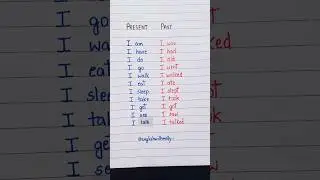 PRESENT PAST
I am I was
I have I had
I do I did
I go I went
I walk I walked
I eat I ate
I sleep I slept
I take I took
I get I got
I see I saw
I talk I talked